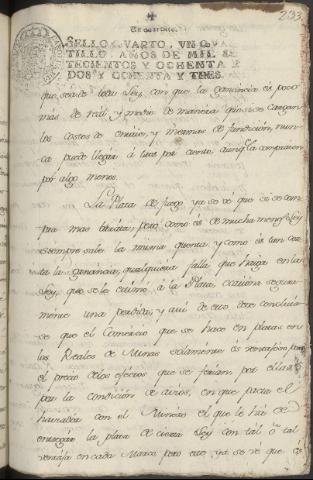 233.
SELLO QVARTO, VN QVAR
TILLO, AÑOS DE MIL SE
TECIENTOS Y OCHENTA Y
DOS, Y OCHENTA Y TRES.
que sea de toda Ley, con que la ganancia es poco
mas de real, y medio de manera que si se cargan
los costos de envio, y mermas de fundicion, nun
ca puede llegar á tres por ciento aunq.e la compraron
por algo menos.
La Plata de fuego ya se vé que se com
pra mas barata; pero como es de mucha menos Ley
siempre sale la misma quenta, y como es tan cor
ta la ganancia, qualquiera falla que haiga en la
Ley, que se le estimó á la Plata, ocaciona segura
mente una perdida, y asi de esto debe concluir
se que el Comercio que se hace en platas en
los Reales de Minas solamente es ventajoso por
el precio de los efectos que se ferian por ellas
por la condición de avios, en que pacta el
haviador con el Minero el que le ha de
entregar la plata de cierta Ley con tal ó tal
ventaja en cada Marco pero esto ya se ve que es